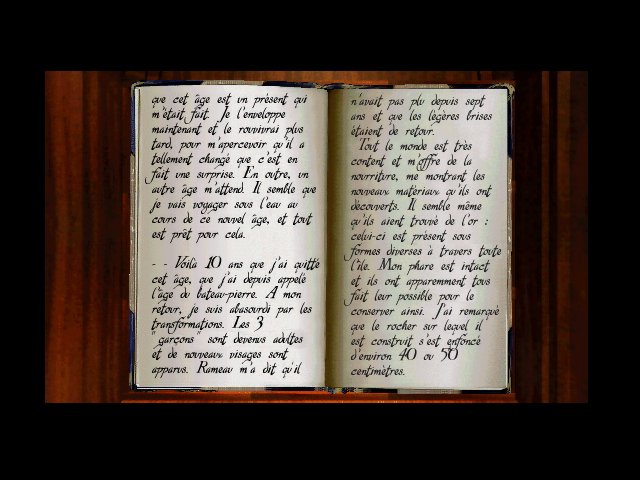 que cet âge est un présent qui
m'était fait. Je l'enveloppe
maintenant et le rouvrirai plus
tard, pour m'apercevoir qu'il a
tellement changé que c'est en
fait une surprise. En outre, un
autre âge m'attend. Il semble que
je vais voyager sous l'eau au
cours de ce nouvel âge, et tout
est prêt pour cela.
- - Voilà 10 ans que j'ai quitté
cet âge, que j'ai depuis appelé
l'âge du bateau-pierre. A mon
retour, je suis abasourdi par les
transformations. Les 3
"garçons" sont devenus adultes
et de nouveaux visages sont
apparus. Rameau m'a dit qu'il
n'avait pas plu depuis sept
ans et que les légères brises
étaient de retour.
Tout le monde est très
content et m'offre de la
nourriture, me montrant les
nouveaux matériaux qu'ils ont
découverts. Il semble même
qu'ils aient trouvé de l'or :
celui-ci est présent sous
formes diverses à travers toute
l'île. Mon phare est intact
et ils ont apparemment tous
fait leur possible pour le
conserver ainsi. J'ai remarqué
que le rocher sur lequel il
est construit s'est enfoncé
d'environ 40 ou 50
centimètres.